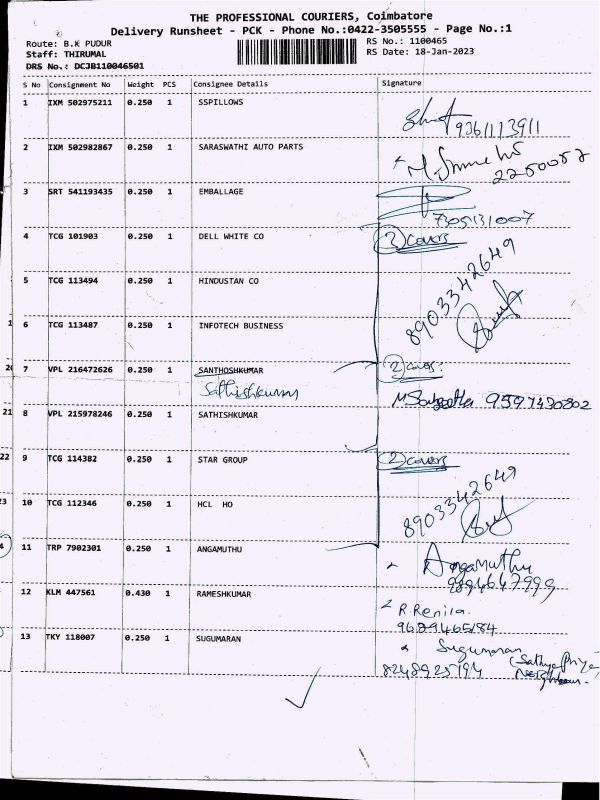 THE PROFESSIONAL COURIERS, Coimbatore
Delivery Runsheet - PCK - Phone No.:0422-3505555 - Page No.:1
Route: B.K PUDUR RS No.: 1100465
Staff: THIRUMAL RS Date: 18-Jan-2023
DRS No.: DCJB110046501
S No Consignment No Weight PCS Consignee Details Signature
1 IXM 502975211 0.250 1 SSPILLOWS
9361113911
2 IXM 502982867 0.250 1 SARASWATHI AUTO PARTS
2250052
3 SRT 541193435 0.250 1 EMBALLAGE
7305131007
4 TCG 101903 0.250 1 DELL WHITE CO 2 covers
5 TCG 113494 0.250 1 HINDUSTAN CO
8903342649
6 TCG 113487 0.250 1 INFOTECH BUSINESS
7 VPL 216472626 0.250 1 SANTHOSHKUMAR 2 covers
Sathishkumar
9597430802
8 VPL 215978246 0.250 1 SATHISHKUMAR
9 TCG 114382 0.250 1 STAR GROUP 2 covers
10 TCG 112346 0.250 1 HCL HO
8903342649
11 TRP 7902301 0.250 1 ANGAMUTHU Angamuthu
12 KLM 447561 0.430 1 RAMESHKUMAR R. Renila
9629465184
13 TKY 118007 0.250 1 SUGUMARAN Sugumaran
8248925194 (Sathya Priya
Neighbour.